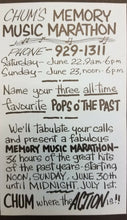 CHUM'S MEMORY
MUSIC MARATHON
PHONE - 929-1311
Saturday - June 22, 9am-6pm
Sunday - June 23, noon-6pm
Name your three all-time
favourite POPS O' THE PAST
We'll tabulate your calls
and present a fabulous
MEMORY MUSIC MARATHON -
36 hours of the great hits
of the past years - starting
NOON, SUNDAY, JUNE 30th
until MIDNIGHT, JULY 1st.
CHUM where the ACTION is!!